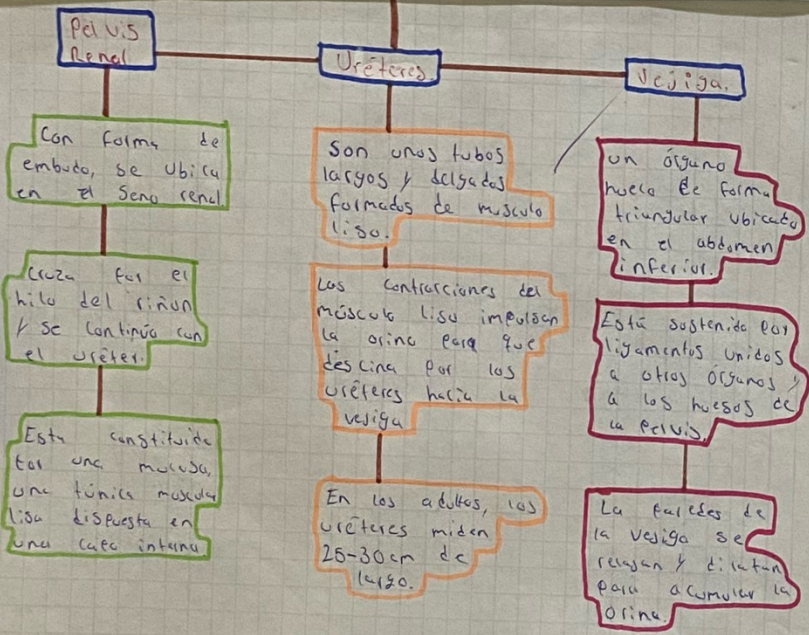 Pelvis
Renal
Uréteres.
Vejiga.
Con forma de
embudo, se ubica
en el Seno renal.
Cruza por el
hilo del riñon
y se continúa con
el uréter.
Esta constituida
por una mucosa,
una túnica muscular
lisa dispuesta en
una capa interna
Son unos tubos
largos y delgados
formados de musculo
liso.
Las contracciones del
músculo liso impulsan
la orina para que
descina por los
uréteres hacia la
vesiga
En los adultos, los
uréteres miden
25-30cm de
largo.
un órgano
hueco de forma
triangular ubicado
en el abdomen
inferior.
Está sostenida por
ligamentos unidos
a otros órganos y
a los huesos de
la pelvis.
La paredes de
la vesiga se
relajan y dilatan
para acumular la
Orina.